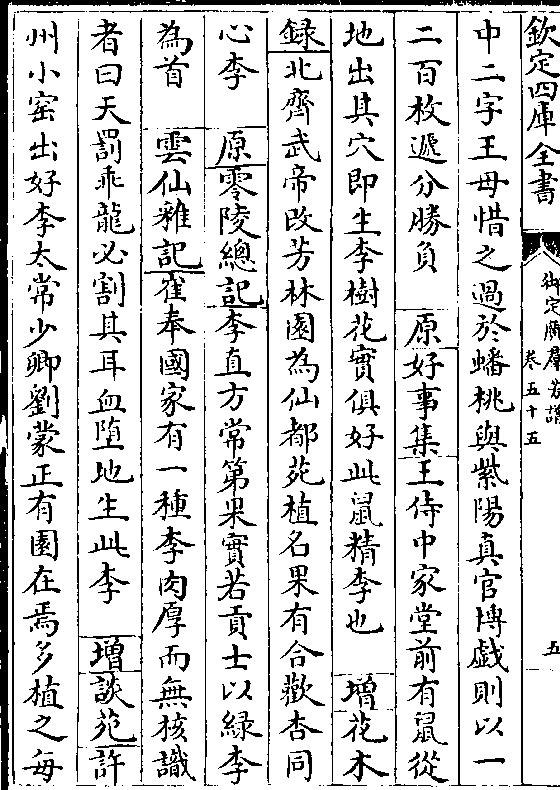 欽定四庫全書
御定廣羣芳譜 卷五十五
五
中二字王母惜之過於蟠桃與紫陽真官博戯則以一
二百枚遞分勝負 原好事集王侍中家堂前有鼠從
地出其穴即生李樹花實俱好此鼠精李也 增花木
録北齊武帝改芳林園為仙都苑植名果有合歡杏同
心李 原零陵總記李直方常第果實若貢士以緑李
為首 雲仙雜記崔奉國家有一種李肉厚而無核識
者曰天罰乖龍必割其耳血墮地生此李 增談苑許
州小窑出好李太常少卿劉蒙正有園在焉多植之每